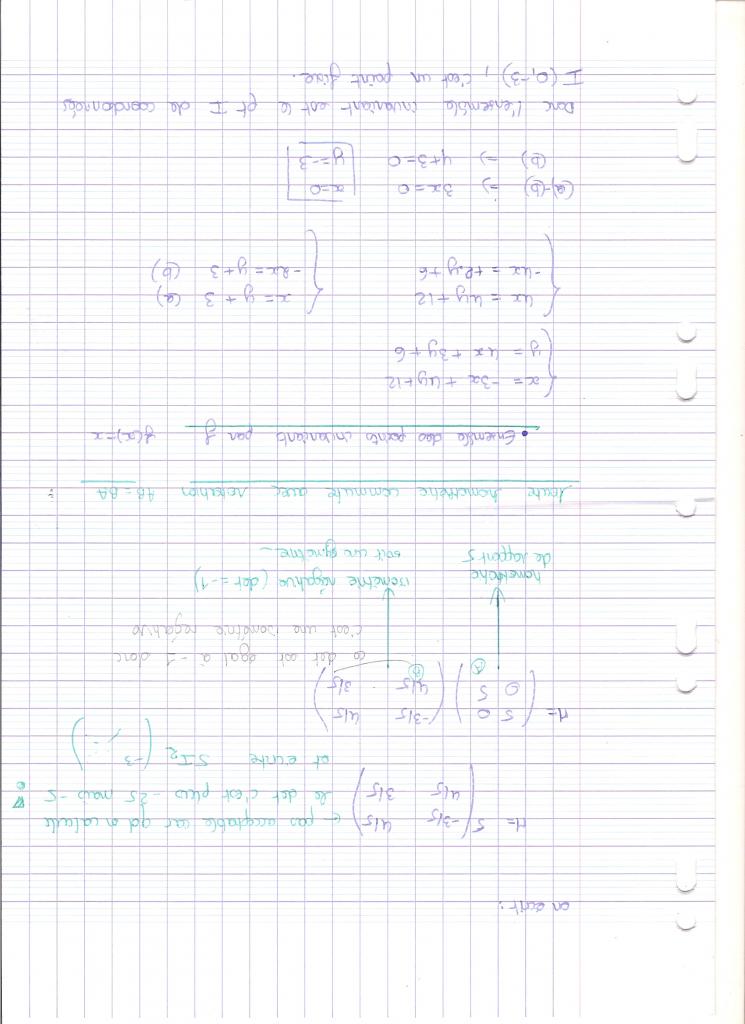 on écrit :
M = 5 ( -3/5 4/5 ) ← pas acceptable car qd on calcule
( 4/5 3/5 ) le det c'est plus -25 mais -5
et écrire 5I₂ ( -3
M = ( 5 0 ) ( -3/5 4/5 )
( 0 5 ) ( 4/5 3/5 ) ce det est égal à -1 donc
c'est une isométrie négative
homothétie isométrie négative (det = -1)
de rapport 5 soit un symétrie
toute homothétie commute avec rotation AB = BA
• Ensemble des points invariants par f f(x)=x
{ x = -3x + 4y + 12
{ y = 4x + 3y + 6
{ 4x = 4y + 12 { x = y + 3 (a)
{ -4x = +2y + 6 { -2x = y + 3 (b)
(a)-(b) ⇒ 3x = 0 x = 0
(b) ⇒ y + 3 = 0 y = -3
Donc l'ensemble invariant est le pt I de coordonnées
I (0, -3), c'est un point fixe.